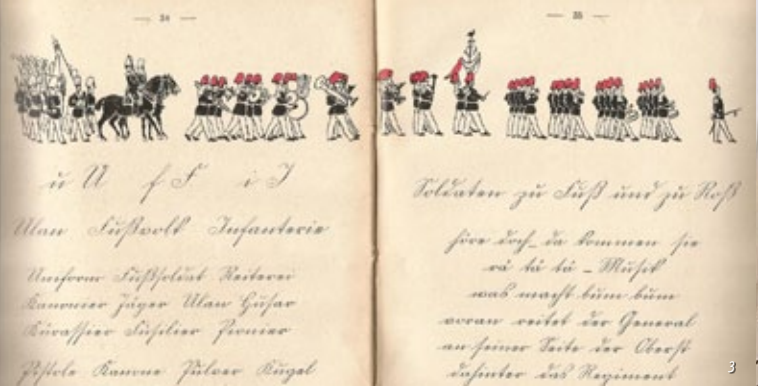 — 34 —
u U f F i I
Ulan Fußvolk Infanterie
Uniform Fußsoldat Reiterei
Kanonier Jäger Ulan Husar
Kürassier Füsilier Pionier
Pistole Kanone Pulver Kugel
— 35 —
Soldaten zu Fuß und zu Roß
höre doch da kommen sie
rä tä tä – Musik
was macht bum bum
voran reitet der General
an seiner Seite der Oberst
dahinter das Regiment
3